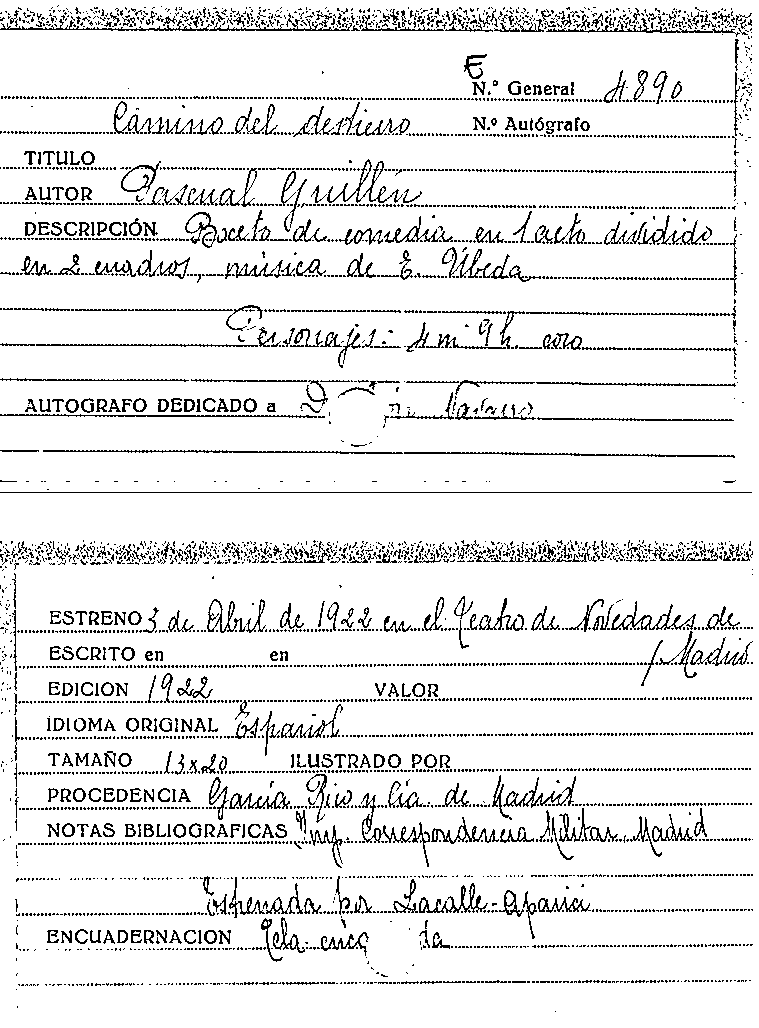 E
N.º General 4890
Camino del destierro N.º Autógrafo
TITULO
AUTOR Pascual Guillén
DESCRIPCIÓN Boceto de comedia en 1 acto dividido
en 2 cuadros, música de E. Úbeda
Personajes: 4 m 9 h. coro
AUTOGRAFO DEDICADO a D. Navarro
ESTRENO 3 de Abril de 1922 en el Teatro de Novedades de
ESCRITO en en / Madrid
EDICION 1922 VALOR
IDIOMA ORIGINAL Español
TAMAÑO 13x20 ILUSTRADO POR
PROCEDENCIA García Rico y Cía. de Madrid
NOTAS BIBLIOGRAFICAS Imp. Correspondencia Militar. Madrid
Estrenada por Lacalle-Aparici
ENCUADERNACION Tela